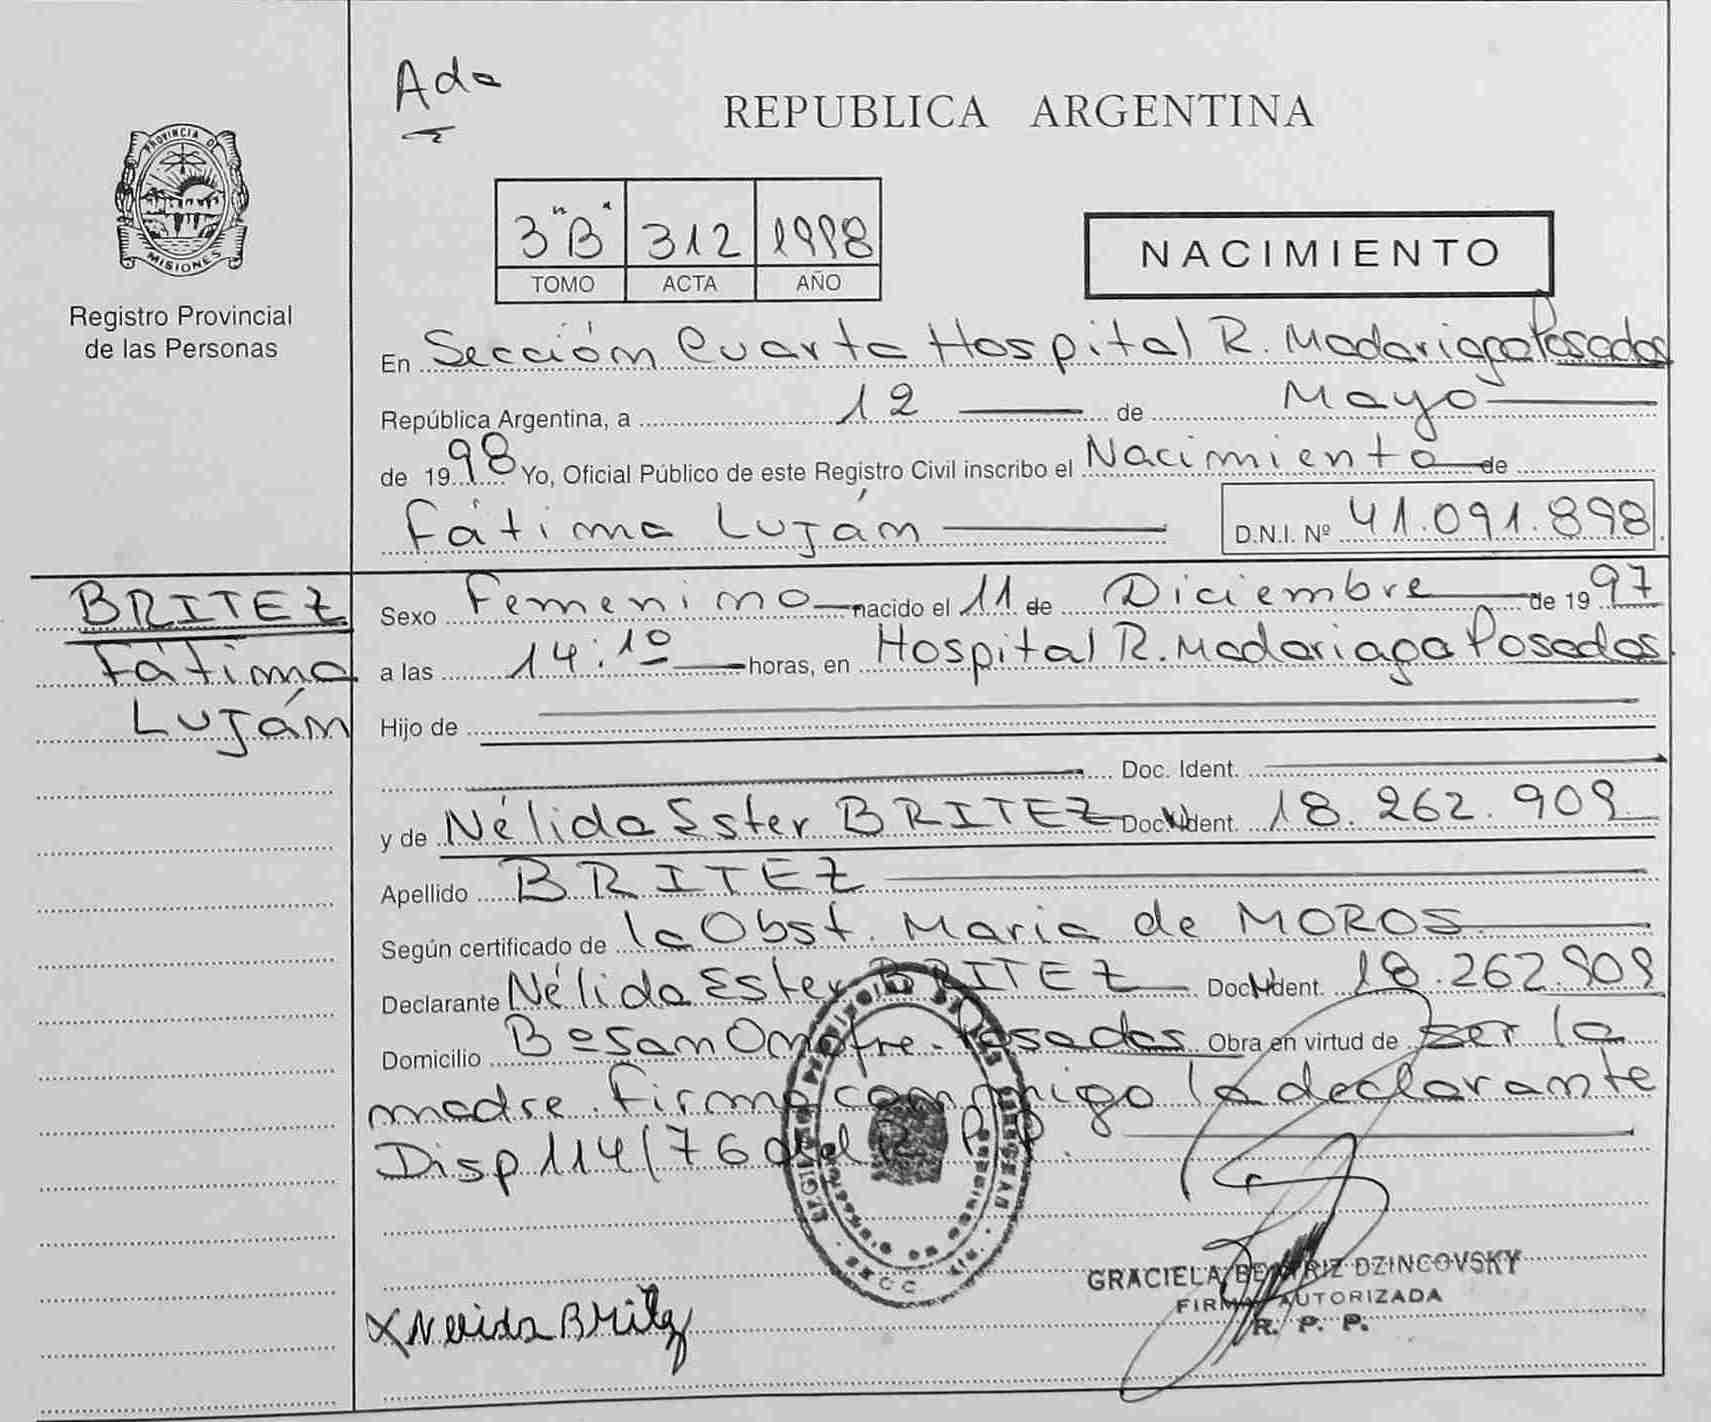 Ada
REPUBLICA ARGENTINA
PROVINCIA DE
MISIONES
Registro Provincial
de las Personas
3 "B" 312 1998
TOMO ACTA AÑO
NACIMIENTO
En Sección Cuarta Hospital R. Madariaga Posadas
República Argentina, a 12 de Mayo
de 1998 Yo, Oficial Público de este Registro Civil inscribo el Nacimiento de
Fátima Luján D.N.I. Nº 41.091.898
BRITEZ
Fátima
Luján
Sexo Femenino nacido el 11 de Diciembre de 1997
a las 14:10 horas, en Hospital R. Madariaga Posadas
Hijo de
Doc. Ident.
y de Nélida Ester BRITEZ Doc. Ident. 18.262.909
Apellido BRITEZ
Según certificado de la Obst. Maria de MOROS
Declarante Nélida Ester BRITEZ Doc. Ident. 18.262.909
Domicilio Bº San Onofre - Posadas Obra en virtud de ser la
madre. Firma conmigo la declarante
Disp 114/76 del R. P. P.
GRACIELA BEATRIZ DZINCOVSKY
FIRMA AUTORIZADA
R. P. P.
X Nelida Britez